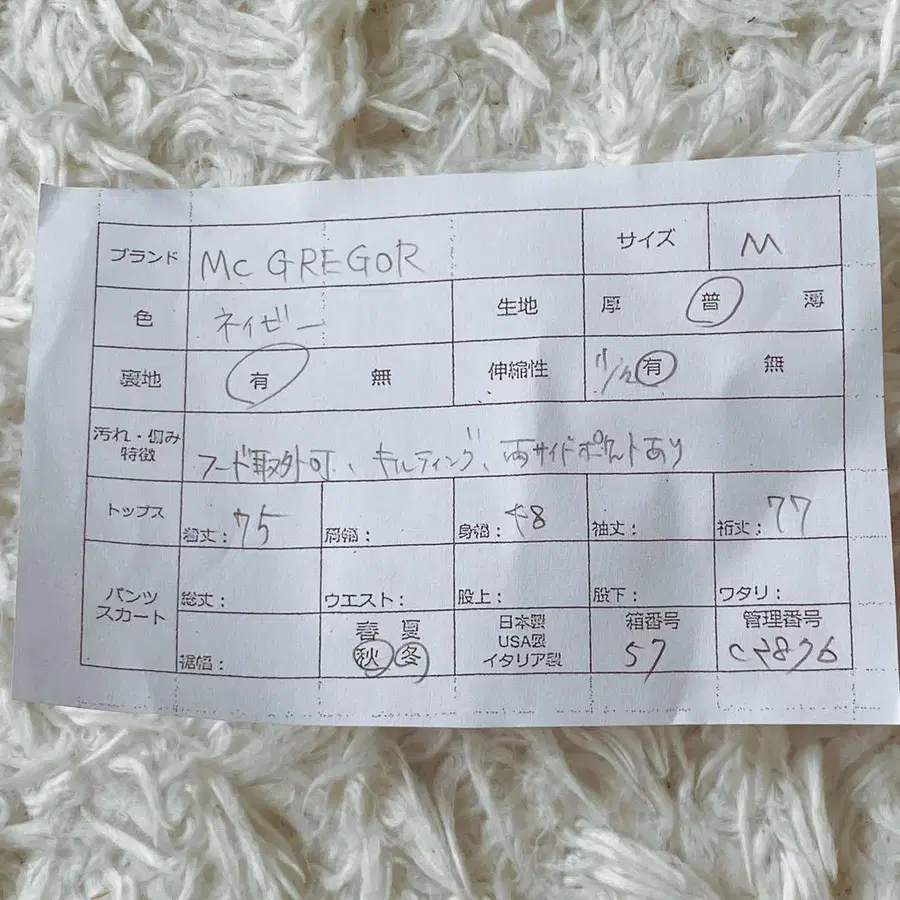 ブランド MC GREGOR サイズ M
色 ネイビー 生地 厚 普 薄
裏地 有 無 伸縮性 有 無
汚れ・傷み
特徴 フード取外可、キルティング、両サイドポケットあり
トップス 着丈：75 肩幅： 身幅：58 袖丈： 裄丈：77
パンツ
スカート 総丈： ウエスト： 股上： 股下： ワタリ：
裾幅： 春 夏
秋 冬 日本製
USA製
イタリア製 箱番号
57 管理番号